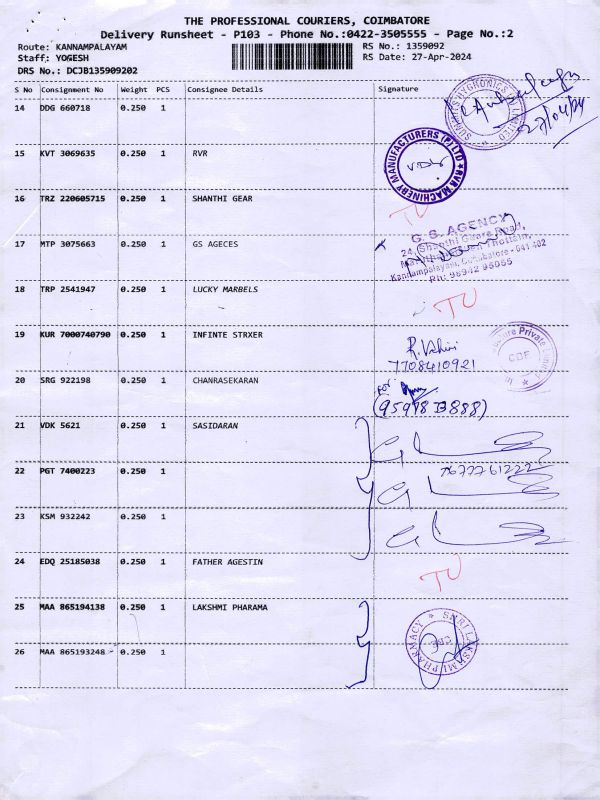 THE PROFESSIONAL COURIERS, COIMBATORE
Delivery Runsheet - P103 - Phone No.:0422-3505555 - Page No.:2
Route: KANNAMPALAYAM RS No.: 1359092
Staff: YOGESH RS Date: 27-Apr-2024
DRS No.: DCJB135909202
S No Consignment No Weight PCS Consignee Details Signature
14 DDG 660718 0.250 1
27/04/24
15 KVT 3069635 0.250 1 RVR
RVR MACHINERY MANUFACTURERS (P) LTD
16 TRZ 220605715 0.250 1 SHANTHI GEAR TU
17 MTP 3075663 0.250 1 GS AGECES
G.S. AGENCY
24, Shanthi Geare Road,
Kannampalayam, Coimbatore - 641 402
Ph: 98942 95055
18 TRP 2541947 0.250 1 LUCKY MARBELS TU
19 KUR 7000740790 0.250 1 INFINTE STRXER
7708410921
CDF
20 SRG 922198 0.250 1 CHANRASEKARAN
for
21 VDK 5621 0.250 1 SASIDARAN
22 PGT 7400223 0.250 1
23 KSM 932242 0.250 1
24 EDQ 25185038 0.250 1 FATHER AGESTIN TU
25 MAA 865194138 0.250 1 LAKSHMI PHARAMA
SHRI LAKSHMI PHARMACY
26 MAA 865193248 0.250 1